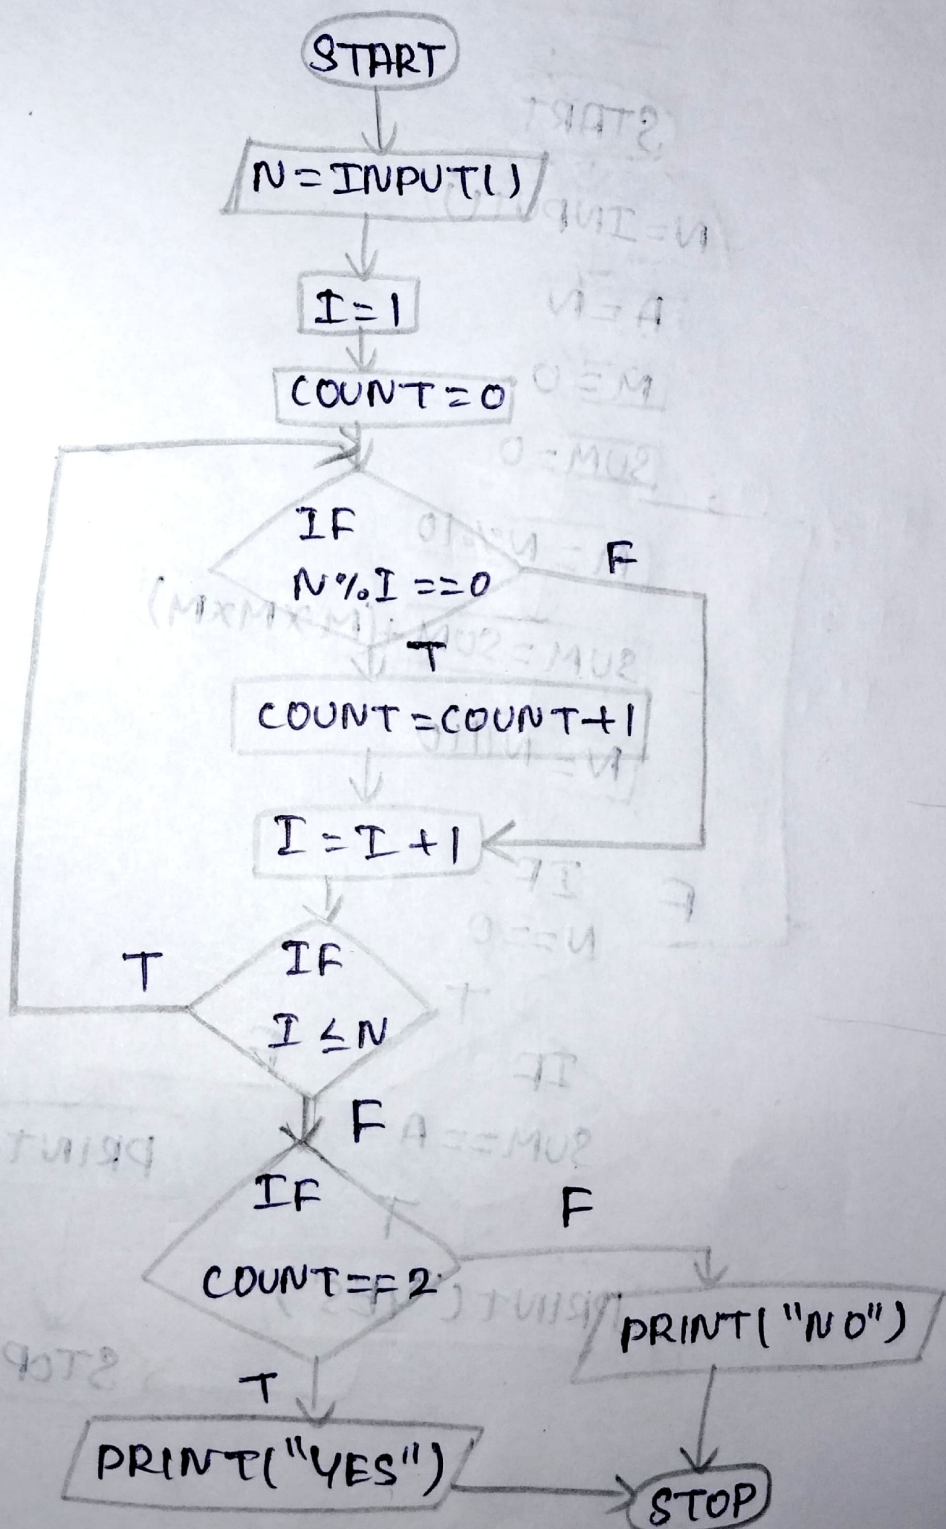 START
N=INPUT()
I=1
COUNT=0
IF
N%I==0
F
T
COUNT=COUNT+1
I=I+1
T
IF
I≤N
F
IF
COUNT==2
F
PRINT("NO")
T
PRINT("YES")
STOP